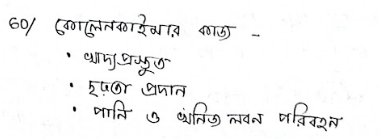 60/ কোলেনকাইমার কাজ -
• খাদ্যপ্রস্তুত
• দৃঢ়তা প্রদান
• পানি ও খনিজ লবন পরিবহন